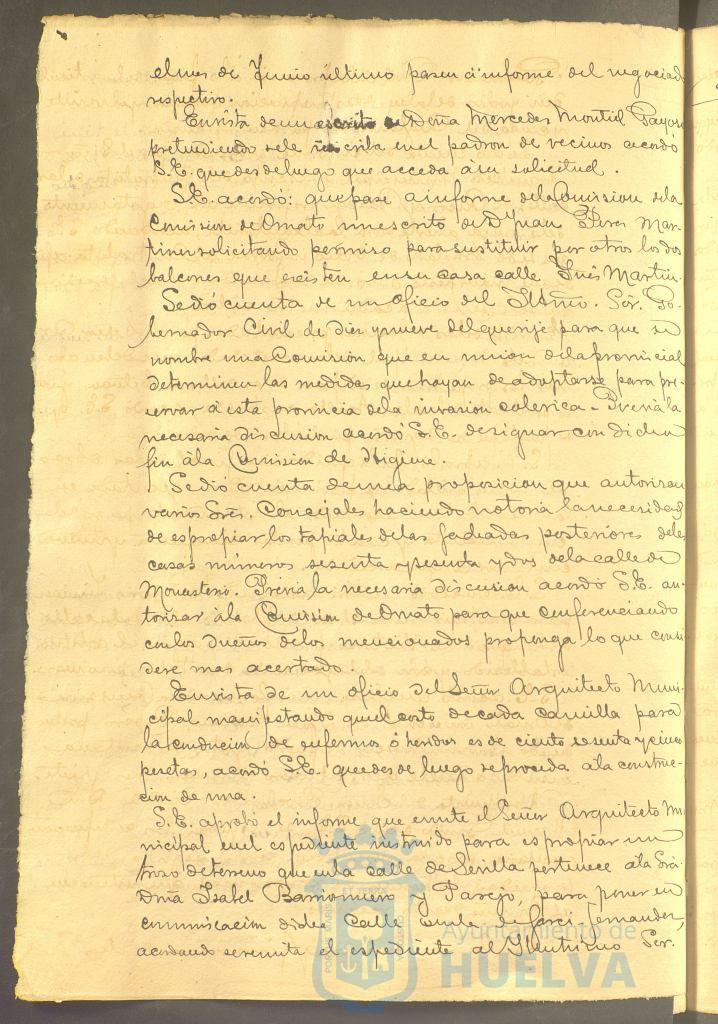 el mes de Junio último pasen á informe del negociado
respectivo.
En vista de un escrito de Doña Mercedes Montiel Payoso
pretendiendo se le inscriba en el padron de vecinos acordó
S.E. que desde luego que acceda á su solicitud.
S.E. acordó: que pase a informe de la Comision de la
Comision de Ornato un escrito de D Juan Perez Mar-
tinez solicitando permiso para sustituir por otros los dos
balcones que existen en su casa calle Inés Martin.
Se dió cuenta de un oficio del Iltmo. Sor. Go-
bernador Civil de diez y nueve del que rije para que se
nombre una Comision que en union de la provincial
determinen las medidas que hayan de adoptarse para pre-
servar á esta provincia de la invasion colerica - Previa la
necesaria discusion acordó S.E. designar con dicho
fin á la Comision de Higiene.
Se dió cuenta de una proposicion que autorizan
varios Sres. Concejales haciendo notoria la necesidad
de espropiar los tapiales de las fachadas posteriores de las
casas números sesenta y sesenta y dos de la calle de
Monasterio. Prévia la necesaria discusion acordó S.E. au-
torizar á la Comision de Ornato para que conferenciando
con los dueños de los mencionados proponga lo que consi-
dere mas acertado.
En vista de un oficio del Señor Arquitecto Muni-
cipal manifestando que el costo de cada camilla para
la conducion de enfermos ó heridos es de ciento sesenta y cinco
pesetas, acordó S.E. que desde luego se proceda á la construc-
cion de una.
S.E. aprobó el informe que emite el Señor Arquitecto Mu-
nicipal en el espediente instruido para espropiar un
trozo de terreno que en la calle de Sevilla pertenece á la Sra
Doña Isabel Barrionuevo y Parejo, para poner en
comunicacion dicha Calle con la de Garci-Fernandez,
acordando se remita el espediente al Ilustrísimo Sor.
Ayuntamiento de
HUELVA